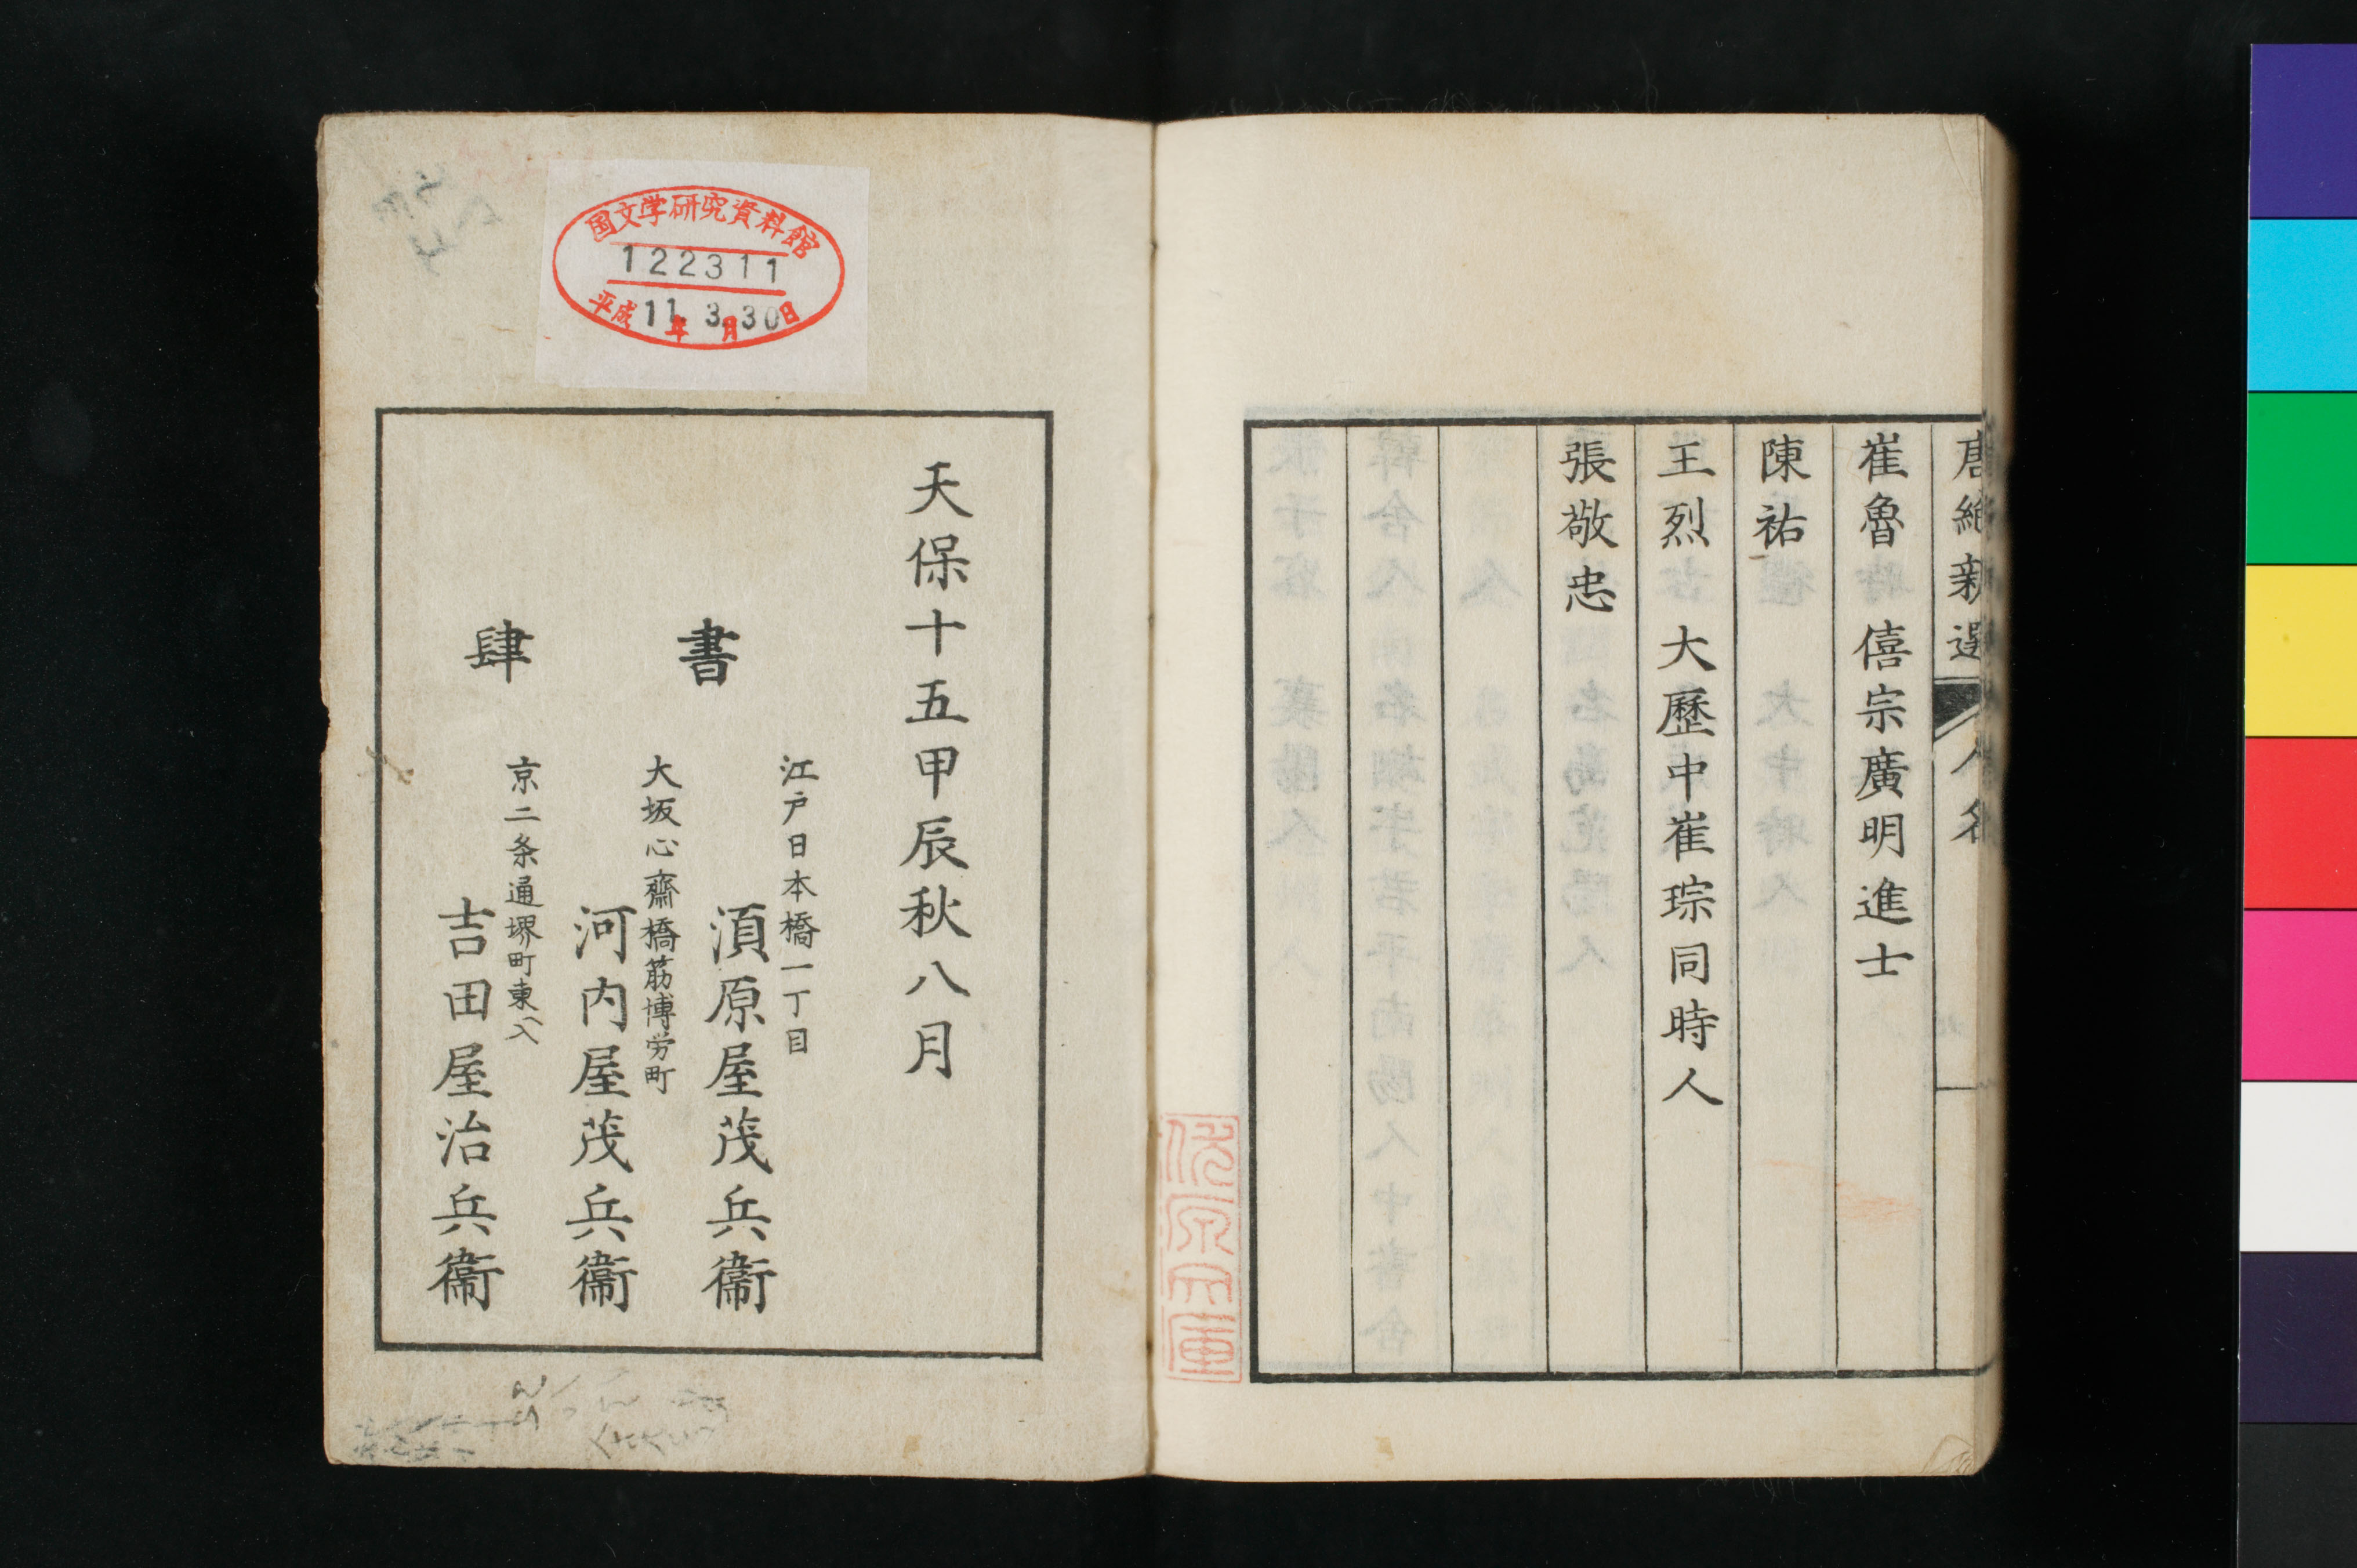 唐絶新選 人名
崔魯 僖宗廣明進士
陳祐
王烈 大歷中崔琮同時人
張敬忠
国文学研究資料館
122311
平成11年3月30日
天保十五甲辰秋八月
書肆
江戸日本橋一丁目
湏原屋茂兵衞
大坂心齋橋筋博労町
河内屋茂兵衞
京二条通堺町東へ入
吉田屋治兵衞